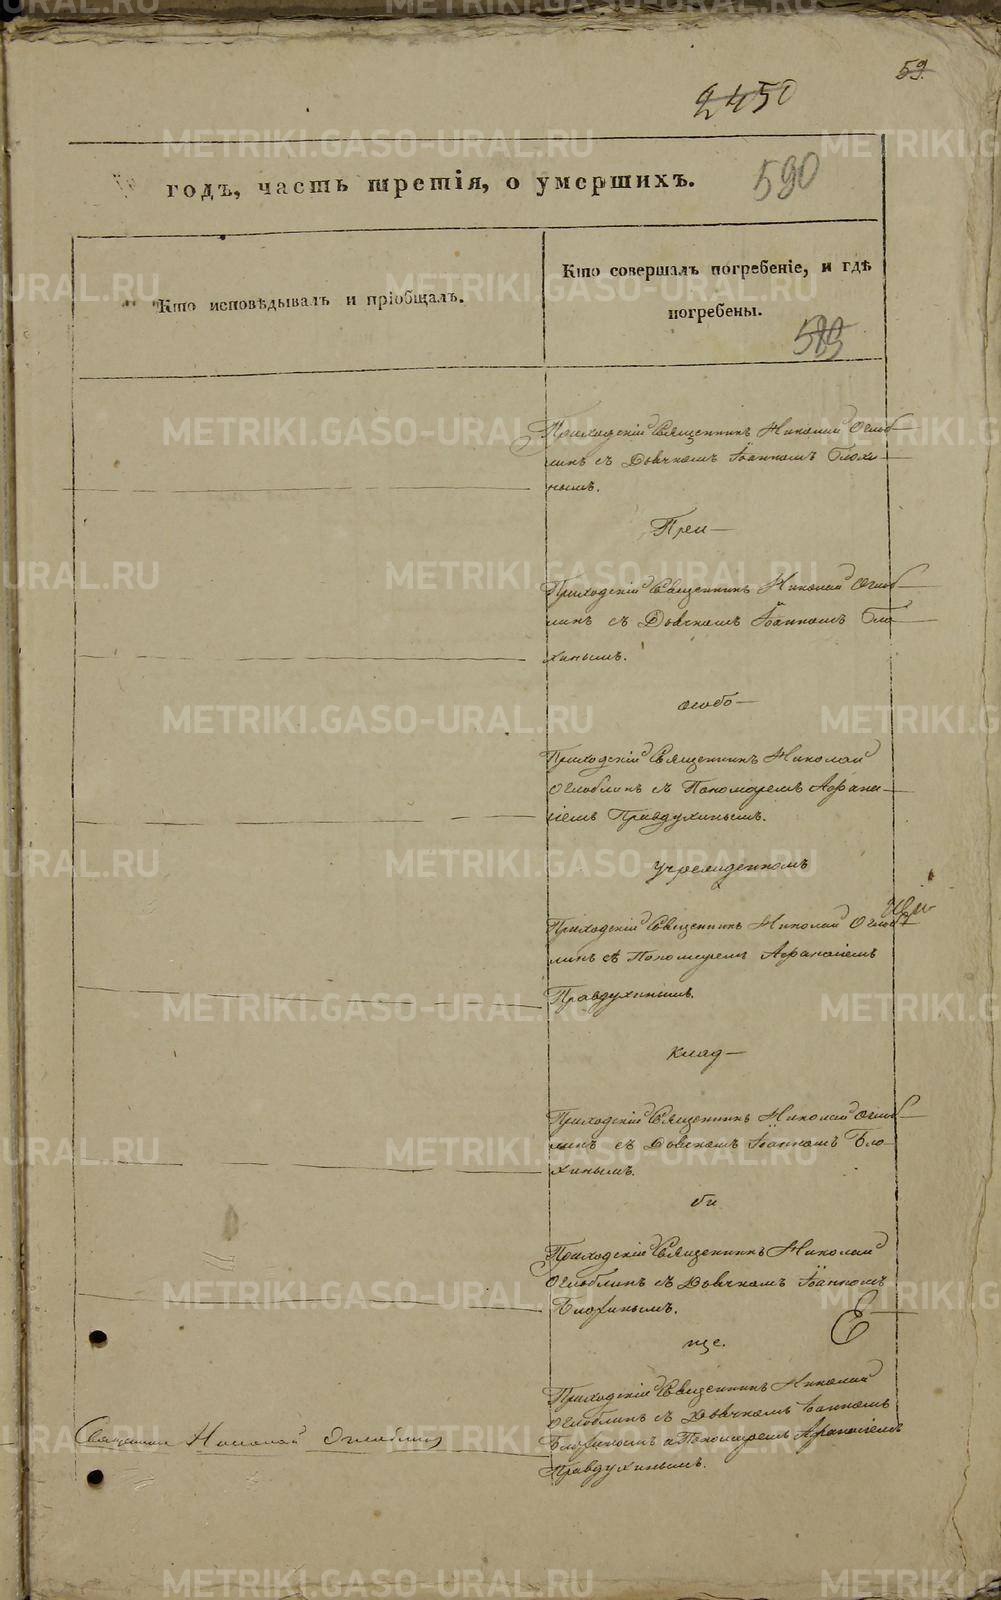 59.
2450
годъ, часть третія, о умершихъ.
590
Кто исповѣдывалъ и пріобщалъ.
Кто совершалъ погребеніе, и гдѣ
погребены.
Приходскій Священникъ Николай Оглоб
линъ съ Дьячкомъ Іоанномъ Блохи
нымъ.
При
Приходскій Священникъ Николай Оглоб
линъ съ Дьячкомъ Іоанномъ Бло
хинымъ.
особо
Приходскій Священникъ Николай
Оглоблинъ съ Пономаремъ Афана
сіемъ Правдухинымъ.
учрежденномъ
Приходскій Священникъ Николай Оглоб
линъ съ Пономаремъ Афанасіемъ
Правдухинымъ.
Клад
Приходскій Священникъ Николай Оглоб
линъ съ Дьячкомъ Іоанномъ Бло
хинымъ.
би
Приходскій Священникъ Николай
Оглоблинъ съ Дьячкомъ Іоанномъ
Блохинымъ.
ще.
Приходскій Священникъ Николай
Оглоблинъ съ Дьячкомъ Іоанномъ
Блохинымъ и Пономаремъ Афанасіемъ
Правдухинымъ.
Священник Николай Оглоблин
METRIKI.GASO-URAL.RU